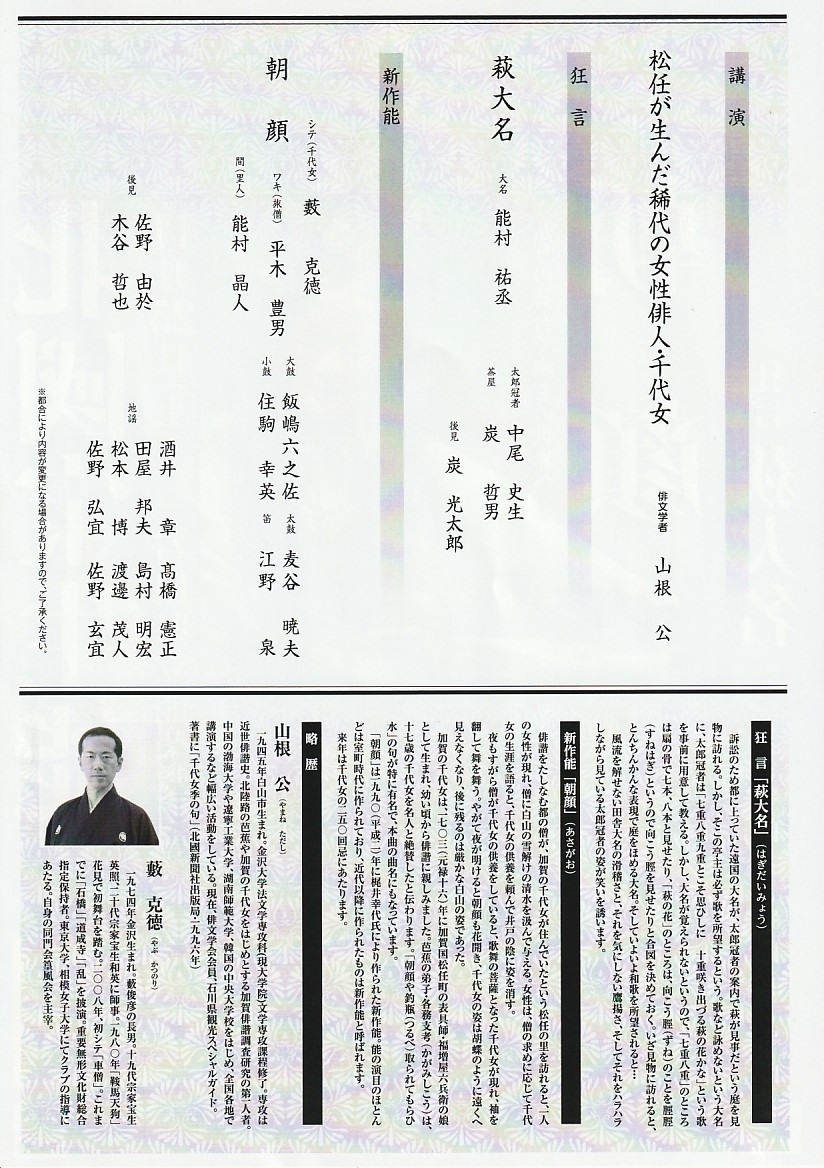 講演
松任が生んだ稀代の女性俳人・千代女
俳文学者　山根　公
狂言
萩大名
大名　能村　祐丞
太郎冠者　中尾　史生
茶屋　炭　哲男
後見　炭　光太郎
新作能
朝顔
シテ（千代女）　藪　克徳
ワキ（旅僧）　平木　豊男
間（里人）　能村　晶人
大鼓　飯嶋六之佐
小鼓　住駒　幸英
太鼓　麦谷　暁夫
笛　江野　泉
後見　佐野　由於
木谷　哲也
地謡
酒井　章　髙橋　憲正
田屋　邦夫　島村　明宏
松本　博　渡邊　茂人
佐野　弘宜　佐野　玄宜
※都合により内容が変更になる場合がありますので、ご了承ください。
狂言「萩大名」（はぎだいみょう）
訴訟のため都に上っていた遠国の大名が、太郎冠者の案内で萩が見事だという庭を見
物に訪れる。しかし、そこの亭主は必ず歌を所望するという。歌など詠めないという大名
に、太郎冠者は「七重八重九重とこそ思ひしに　十重咲き出づる萩の花かな」という歌
を事前に用意して教える。しかし、大名が覚えられないというので、「七重八重」のところ
は扇の骨で七本、八本と見せたり、「萩の花」のところは、向こう脛（ずね）のことを脛脛
（すねはぎ）というので向こう脛を見せたりと合図を決めておく。いざ見物に訪れると、
とんちんかんな表現で庭をほめる大名。そしていよいよ和歌を所望されると…
風流を解せない田舎大名の滑稽さと、それを気にしない鷹揚さ、そしてそれをハラハラ
しながら見ている太郎冠者の姿が笑いを誘います。
新作能「朝顔」（あさがお）
俳諧をたしなむ都の僧が、加賀の千代女が住んでいたという松任の里を訪れると、一人
の女性が現れ、僧に白山の雪解けの清水を汲んで与える。女性は、僧の求めに応じて千代
女の生涯を語ると、千代女の供養を頼んで井戸の陰に姿を消す。
夜もすがら僧が千代女の供養をしていると、歌舞の菩薩となった千代女が現れ、袖を
翻して舞を舞う。やがて夜が明けると朝顔も花開き、千代女の姿は胡蝶のように遠くへ
見えなくなり、後に残るのは厳かな白山の姿であった。
加賀の千代女は、一七〇三（元禄十六）年に加賀国松任町の表具師・福増屋六兵衛の娘
として生まれ、幼い頃から俳諧に親しみました。芭蕉の弟子・各務支考（かがみしこう）は、
十七歳の千代女を名人と絶賛したと伝わります。「朝顔や釣瓶（つるべ）取られてもらひ
水」の句が特に有名で、本曲の曲名にもなっています。
「朝顔」は一九九〇（平成二）年に梶井幸代氏により作られた新作能。能の演目のほとん
どは室町時代に作られており、近代以降に作られたものは新作能と呼ばれます。
来年は千代女の二五〇回忌にあたります。
略歴
山根　公（やまね　ただし）
一九四五年白山市生まれ。金沢大学法文学専攻科（現大学院）文学専攻課程修了。専攻は
近世俳諧史。北陸路の芭蕉や加賀の千代女をはじめとする加賀俳諧調査研究の第一人者。
中国の渤海大学や遼寧工業大学、湖南師範大学、韓国の中央大学校をはじめ、全国各地で
講演するなど幅広い活動をしている。現在、俳文学会会員、石川県観光スペシャルガイド。
著書に「千代女季の句」（北國新聞社出版局・一九九六年）
藪　克徳（やぶ　かつのり）
一九七四年金沢生まれ。藪俊彦の長男。十九代宗家宝生
英照、二十代宗家宝生和英に師事。一九八〇年「鞍馬天狗」
花見で初舞台を踏む。二〇〇八年、初シテ「車僧」。これま
でに「石橋」「道成寺」「乱」を披演。重要無形文化財総合
指定保持者。東京大学、相模女子大学にてクラブの指導に
あたる。自身の同門会篁風会を主宰。